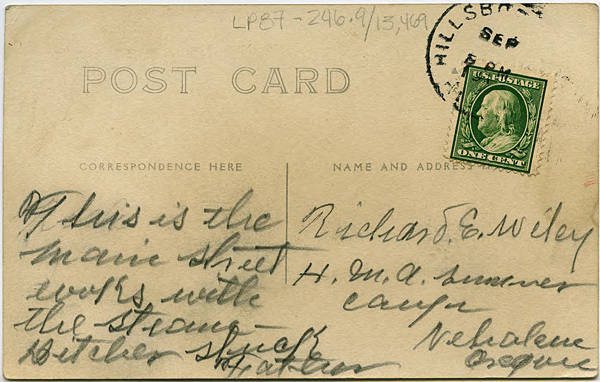 LP87-246.9/13,469
HILLSBO
SEP
5 PM
U.S. POSTAGE
ONE CENT
POST CARD
CORRESPONDENCE HERE
NAME AND ADDRESS
This is the
main street
works with
the steam
Ditcher stuck
Richard E. Wiley
H. M. A. summer
camp
Nehalem
Oregon